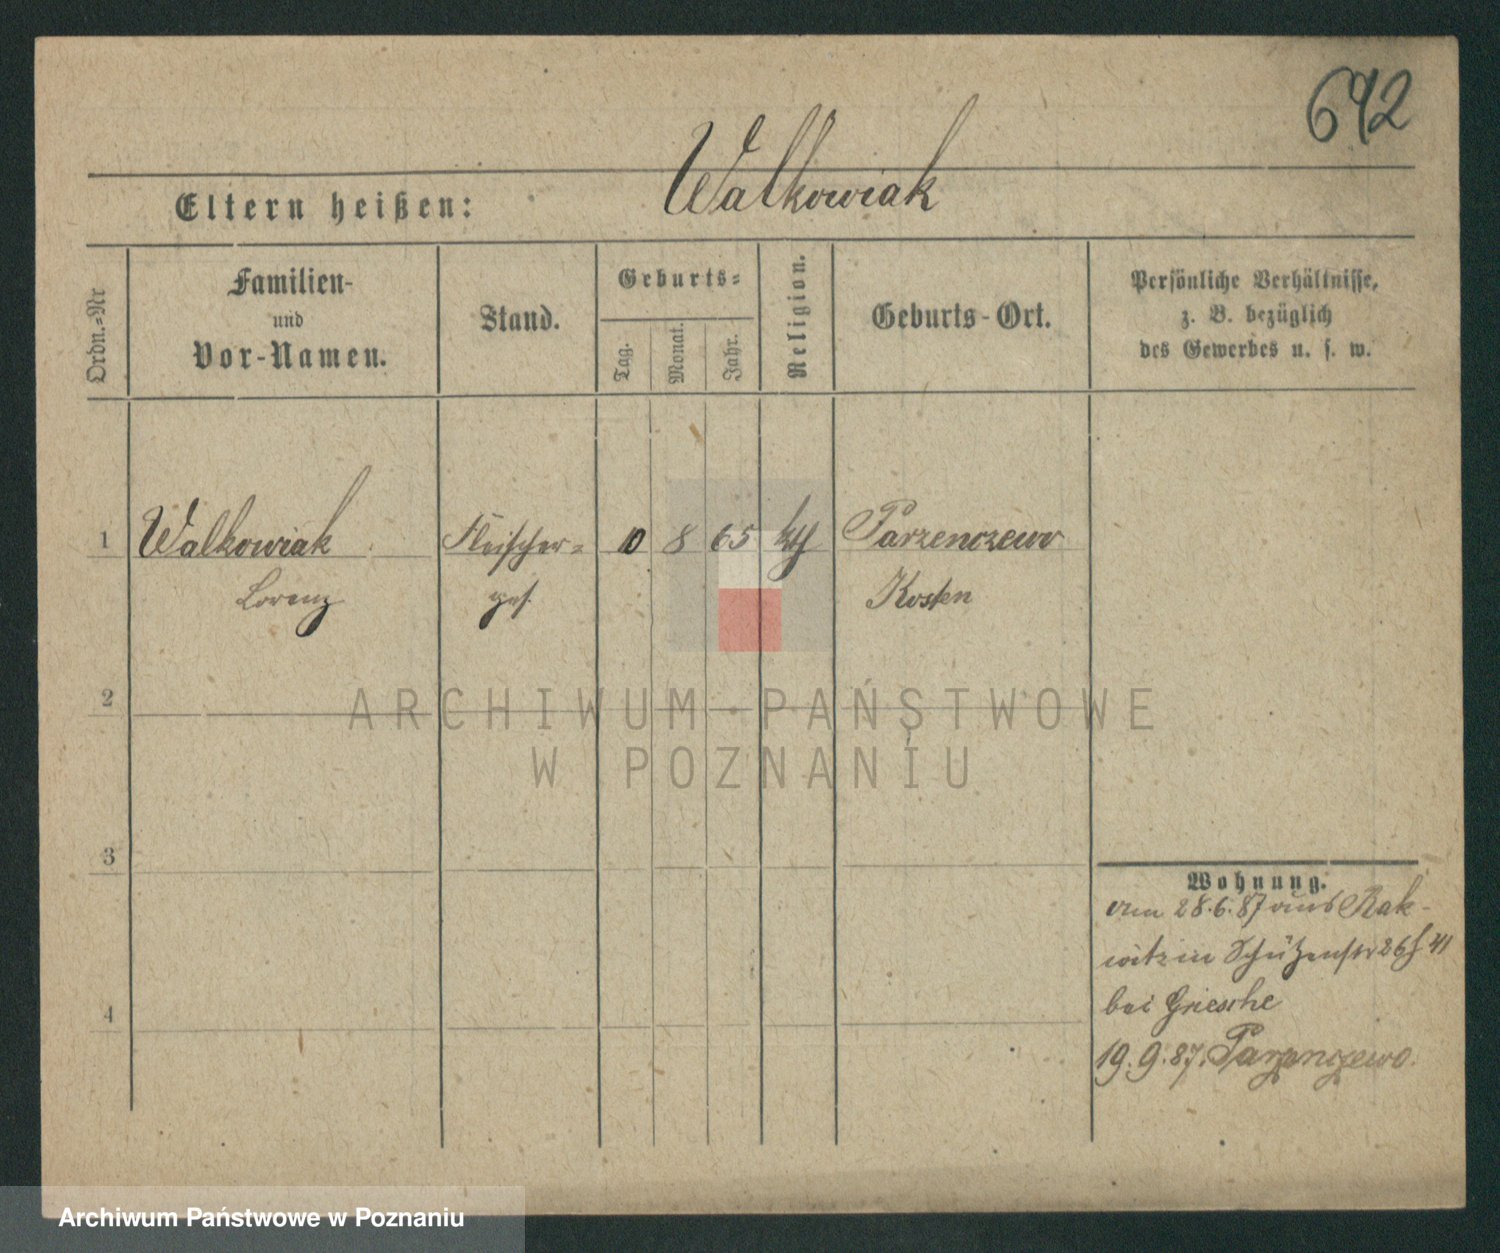 642
Walkowiak
Eltern heißen:
Ordn.-Nr
Familien-
und
Vor-Namen.
Stand.
Geburts-
Tag.
Monat.
Jahr.
Religion.
Geburts-Ort.
Persönliche Verhältnisse,
z. B. bezüglich
des Gewerbes u. s. w.
1 Walkowiak Fleischer- 10 8 65 kth Parzenczewo
Lorenz ges. Kosten
2
ARCHIWUM PAŃSTWOWE
W POZNANIU
3
4
Wohnung.
am 28.6.87 aus Rak-
witz in Schützenstr 26
bei Griesche
19.9.87. Parzenczewo.
Archiwum Państwowe w Poznaniu